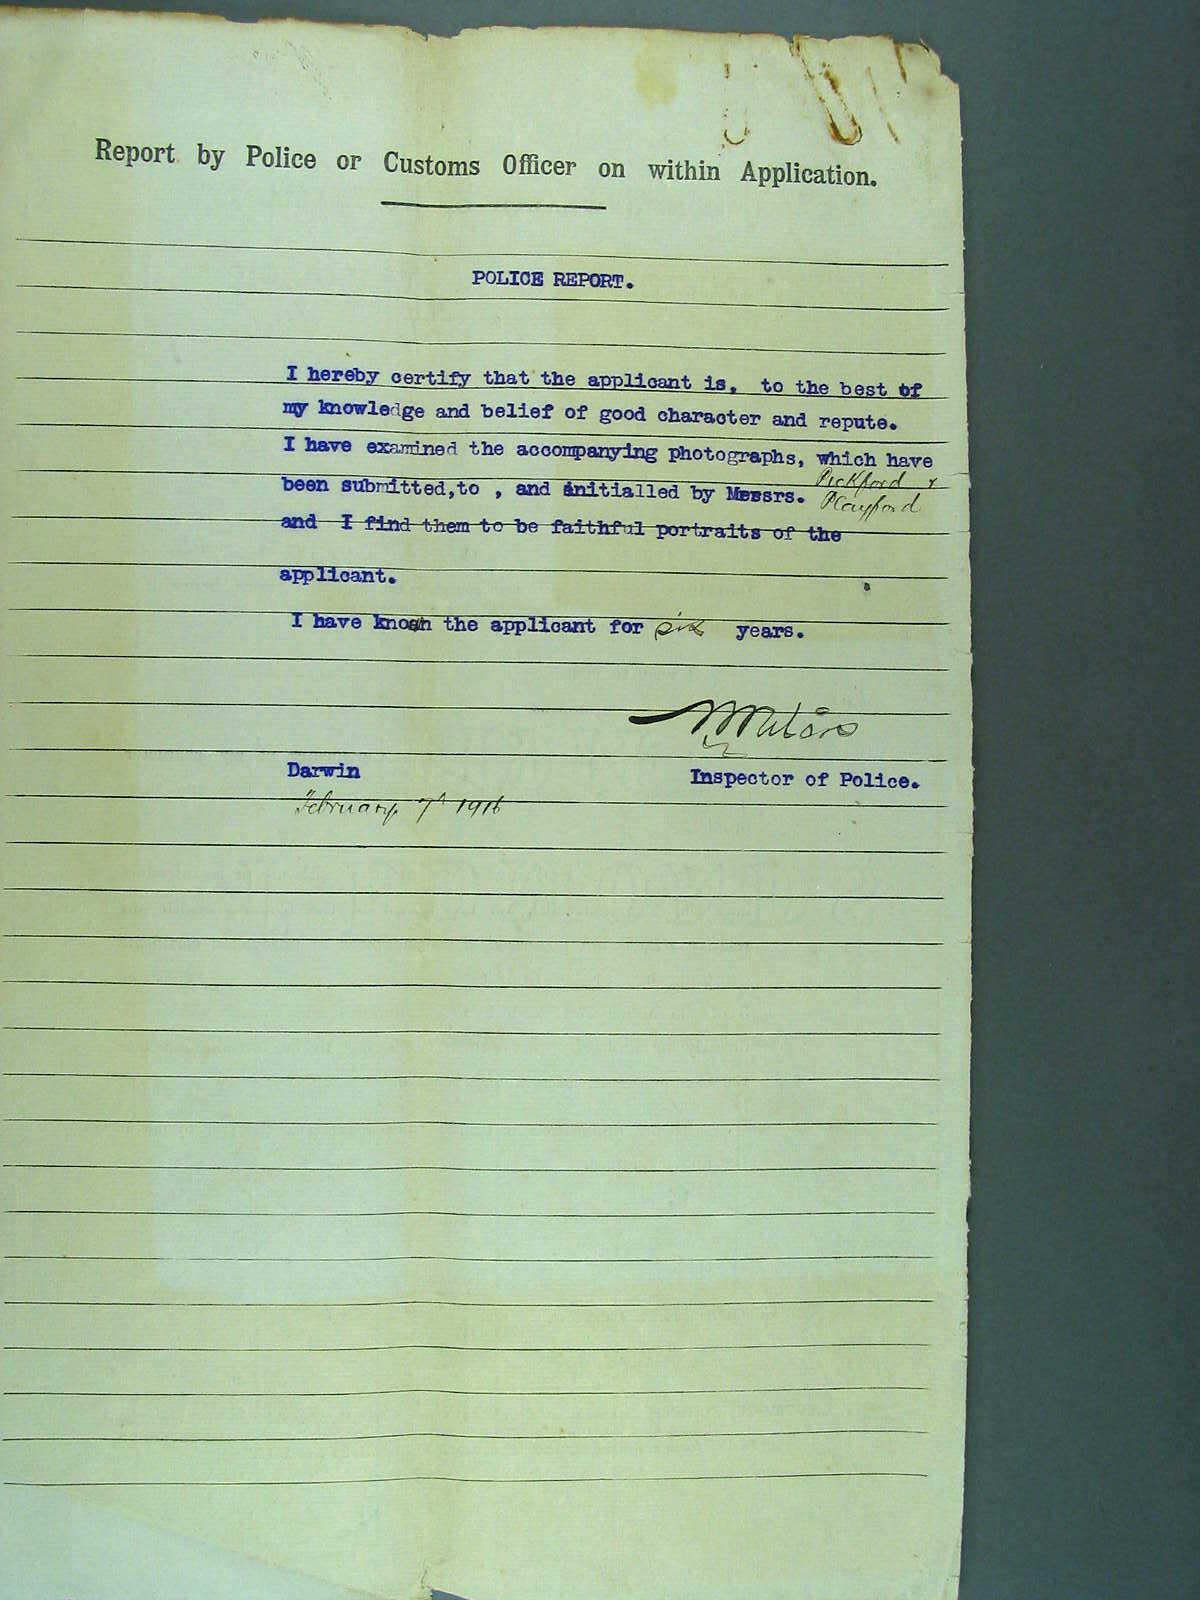 Report by Police or Customs Officer on within Application.
POLICE REPORT.
I hereby certify that the applicant is, to the best of
my knowledge and belief of good character and repute.
I have examined the accompanying photographs, which have
been submitted,to , and initialled by Messrs. Pickford &
Playford
and I find them to be faithful portraits of the
applicant.
I have known the applicant for six years.
Darwin
Inspector of Police.
February 7th 1916